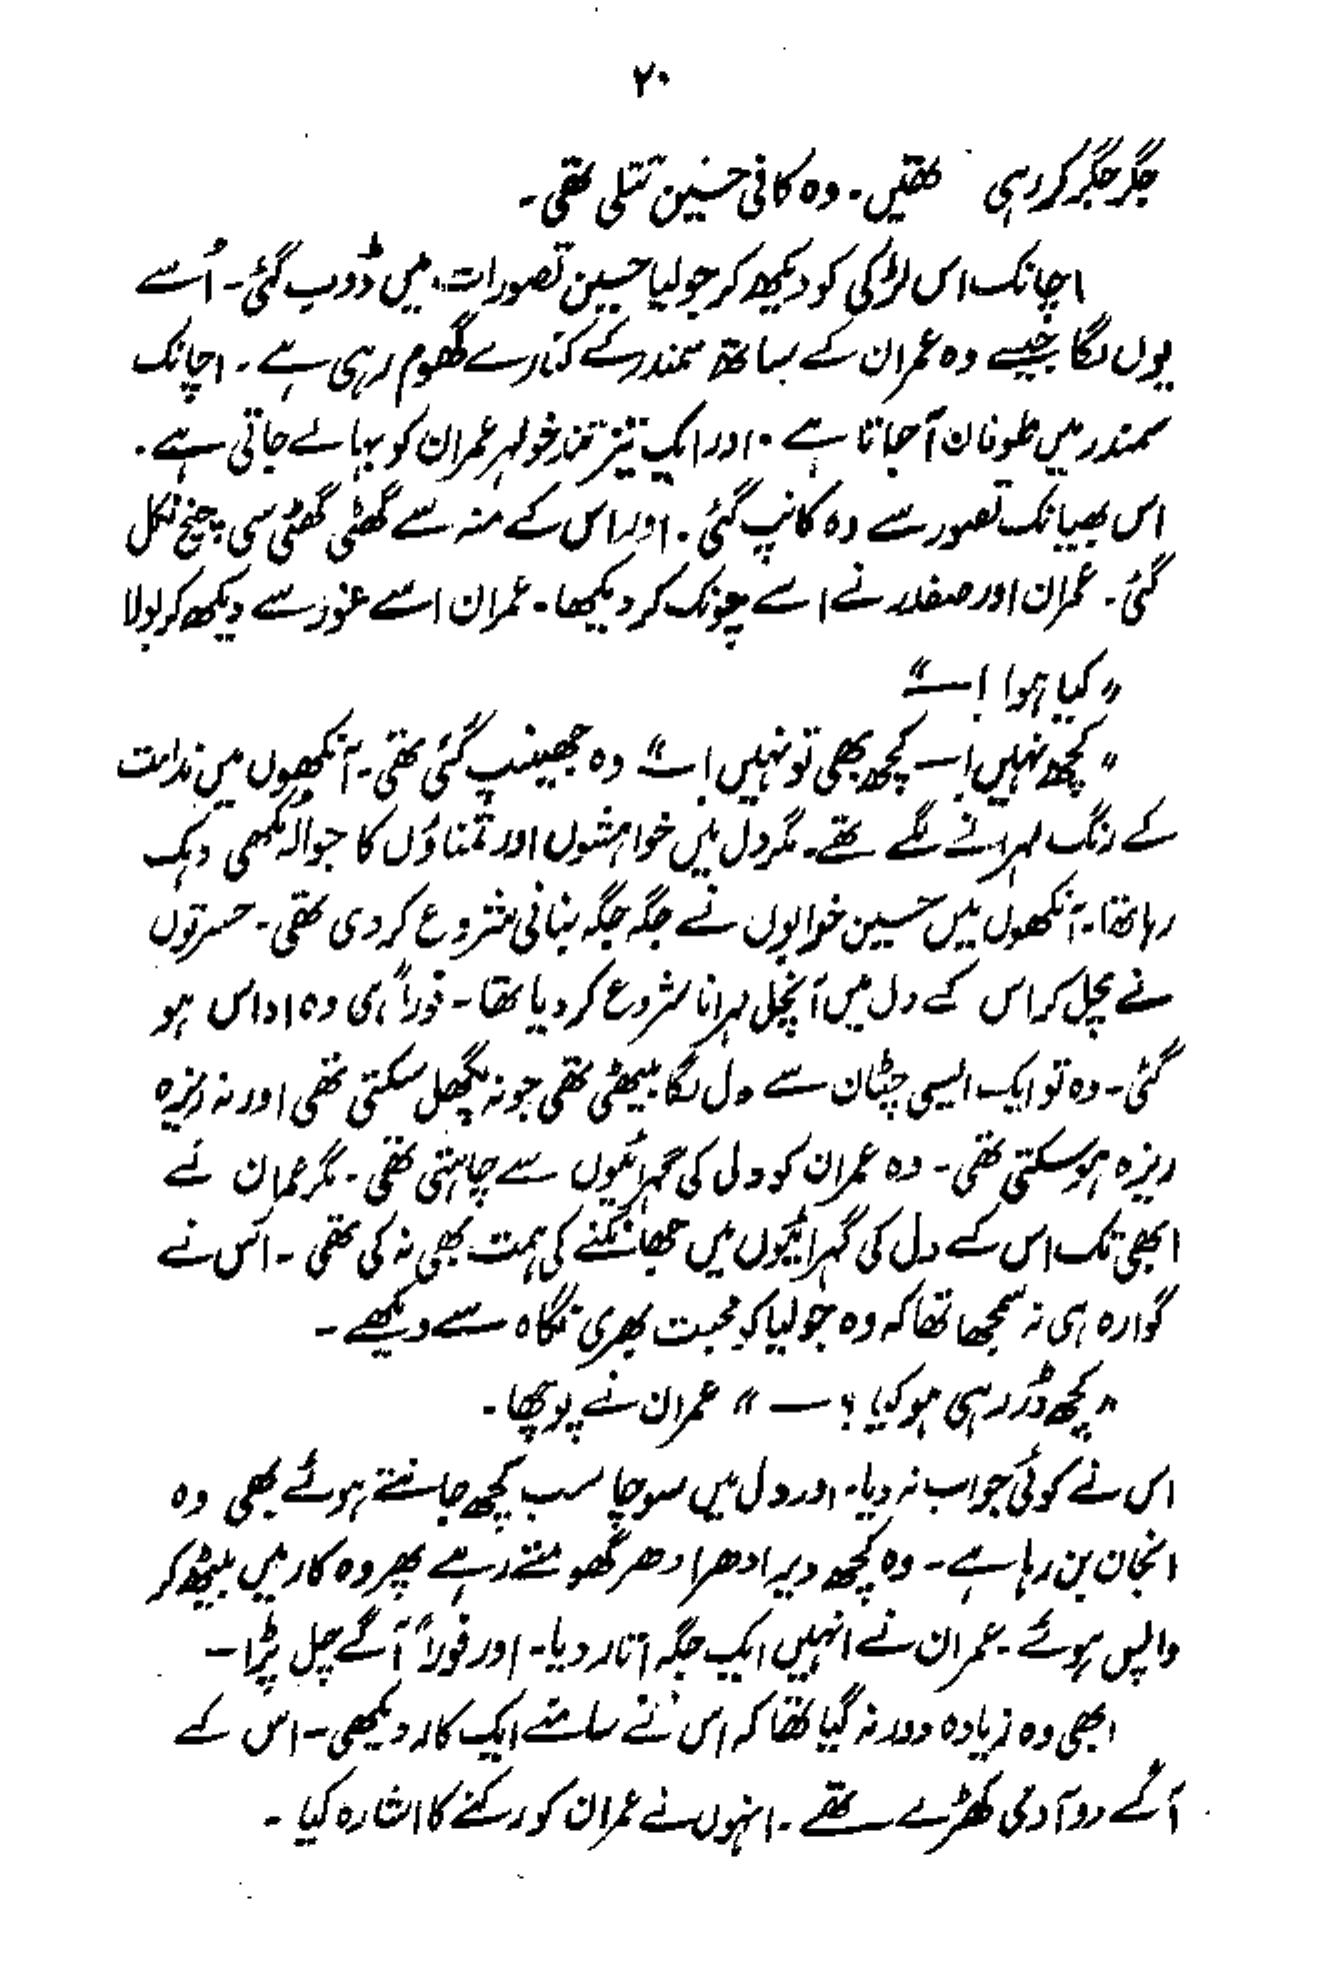 ۲۰
جگر جگر کر رہی تھیں۔ وہ کافی حسین تتلی تھی۔
اچانک اس لڑکی کو دیکھ کر جولیا حسین تصورات میں ڈوب گئی۔ اُسے
یوں لگا جیسے وہ عمران کے ساتھ سمندر کے کنارے گھوم رہی ہے۔ اچانک
سمندر میں طوفان آ جاتا ہے۔ اور ایک تیز تند خو لہر عمران کو بہا لے جاتی ہے۔
اس بھیانک تصور سے وہ کانپ گئی۔ اور اس کے منہ سے گھٹی گھٹی سی چیخ نکل
گئی۔ عمران اور صفدر نے اسے چونک کر دیکھا۔ عمران اسے غور سے دیکھ کر بولا
"کیا ہوا !—"
"کچھ نہیں !— کچھ بھی تو نہیں !—" وہ جھینپ گئی تھی۔ آنکھوں میں ندامت
کے رنگ لہرانے لگے تھے۔ مگر دل میں خواہشوں اور تمناؤں کا جوالا مکھی دہک
رہا تھا۔ آنکھوں میں حسین خوابوں نے جگہ جگہ بنانی شروع کر دی تھی۔ حسرتوں
نے مچل کر اس کے دل میں آنچل لہرانا شروع کر دیا تھا۔ فوراً ہی وہ اداس ہو
گئی۔ وہ تو ایک ایسی چٹان سے دل لگا بیٹھی تھی جو نہ پگھل سکتی تھی اور نہ ریزہ
ریزہ ہو سکتی تھی۔ وہ عمران کو دل کی گہرائیوں سے چاہتی تھی۔ مگر عمران نے
ابھی تک اس کے دل کی گہرائیوں میں جھانکنے کی ہمت بھی نہ کی تھی۔ اس نے
گوارہ ہی نہ سمجھا تھا کہ وہ جولیا کو محبت بھری نگاہ سے دیکھے۔
"کچھ ڈر رہی ہو کیا ؟—" عمران نے پوچھا۔
اس نے کوئی جواب نہ دیا۔ اور دل میں سوچا سب کچھ جانتے ہوئے بھی وہ
انجان بن رہا ہے۔ وہ کچھ دیر ادھر ادھر گھومتے رہے پھر وہ کار میں بیٹھ کر
واپس ہوئے۔ عمران نے انہیں ایک جگہ اتار دیا۔ اور فوراً آگے چل پڑا۔
ابھی وہ زیادہ دور نہ گیا تھا کہ اس نے سامنے ایک کار دیکھی۔ اس کے
آگے دو آدمی کھڑے تھے۔ انہوں نے عمران کو رکنے کا اشارہ کیا۔